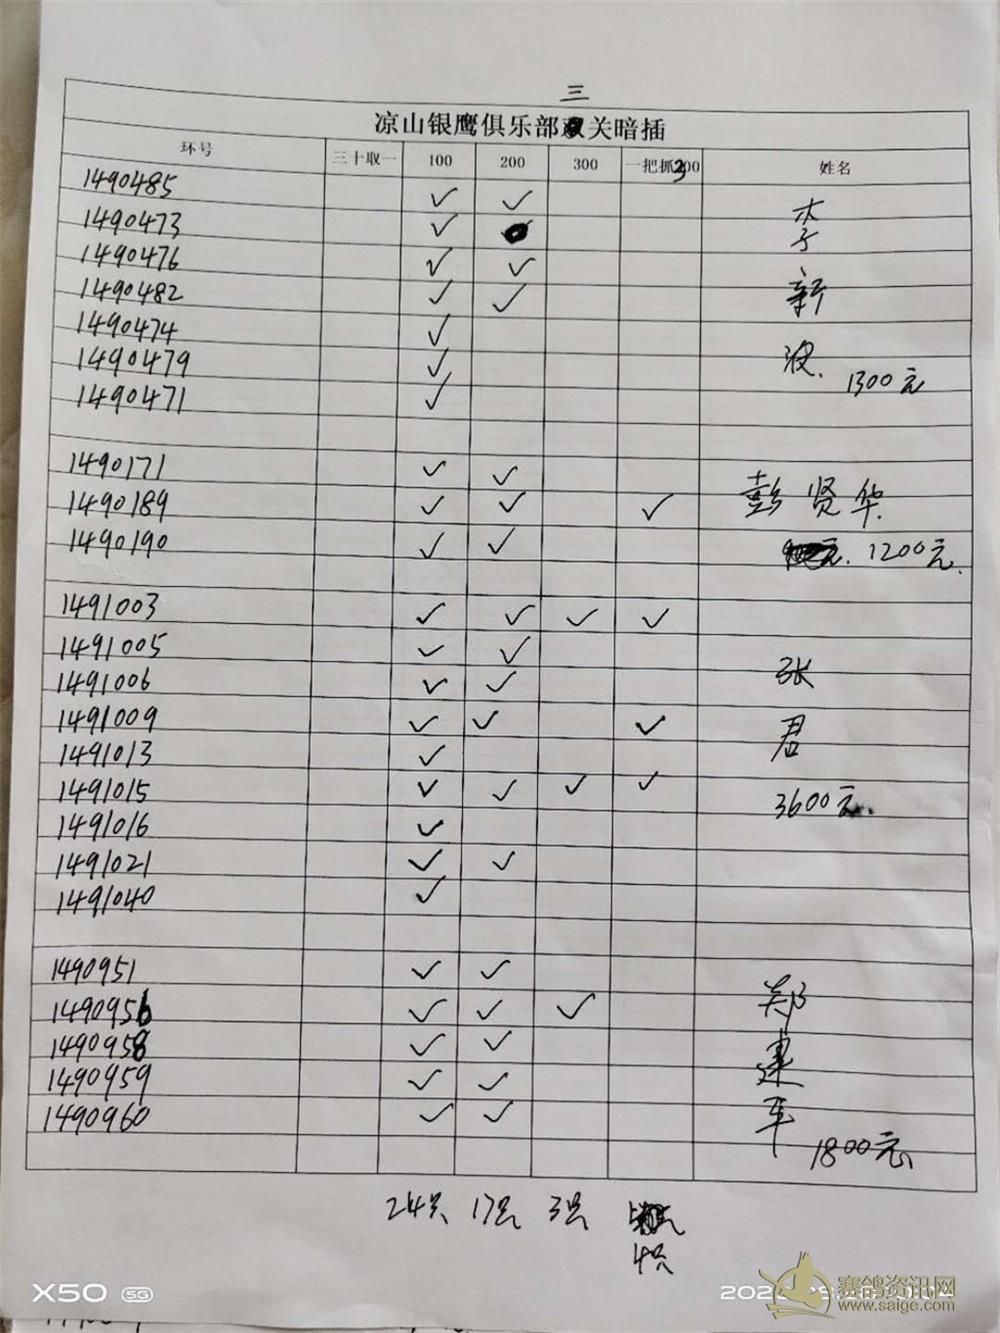 三
凉山银鹰俱乐部关暗插
环号 三十取一 100 200 300 一把抓300 姓名
1490485 ✓ ✓ 李
1490473 ✓
1490476 ✓ ✓
1490482 ✓ ✓ 新
1490474 ✓
1490479 ✓ 波. 1300元
1490471 ✓
1490171 ✓ ✓
1490189 ✓ ✓ ✓ 彭贤华
1490190 ✓ ✓ 1200元.
1491003 ✓ ✓ ✓ ✓
1491005 ✓ ✓ 张
1491006 ✓ ✓
1491009 ✓ ✓ ✓ 君
1491013 ✓
1491015 ✓ ✓ ✓ ✓ 3600元.
1491016 ✓
1491021 ✓ ✓
1491040 ✓
1490951 ✓ ✓ 郑
1490956 ✓ ✓ ✓
1490958 ✓ ✓ 建
1490959 ✓ ✓
1490960 ✓ ✓ 平
1800元
24只 17只 3只
4只
X50 5G
赛鸽资讯网
www.saige.com